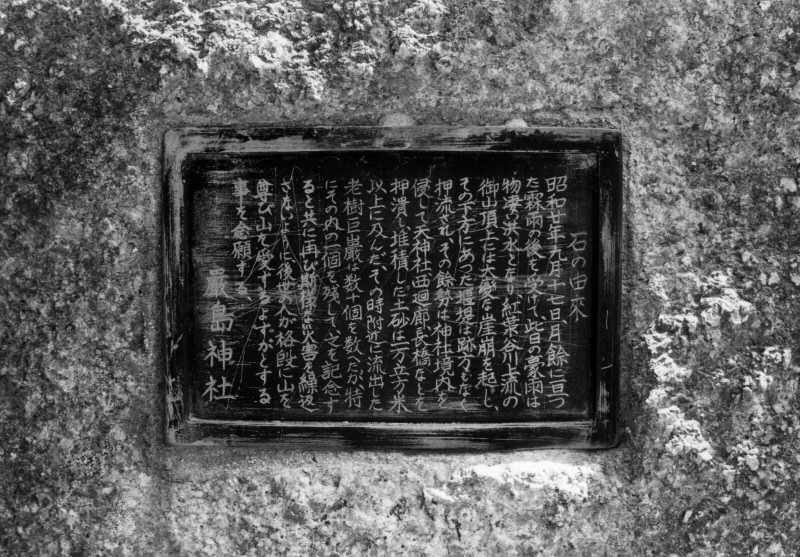 石の由來
昭和廿年九月十七日、月餘に亘つ
た霖雨の後を受けて此日の豪雨は
物凄い洪水となり紅葉谷川上流の
御山頂上には大 な崖崩を起し、
その下方にあつた堰堤は跡方もなく
押流され、その餘勢は神社境内を
侵して天神社西廻廊長橋などを
押潰し堆積した土砂は一万立方米
以上に及んだ、その時附近に流出した
老樹巨巖は数千個を数へたが特
にその内の一個を残して之を記念す
ると共に再び斯様な災害を繰返へ
さないように後世の人が格段に山を
尊び山を愛するよすがとする
事を念願する、
嚴島神社